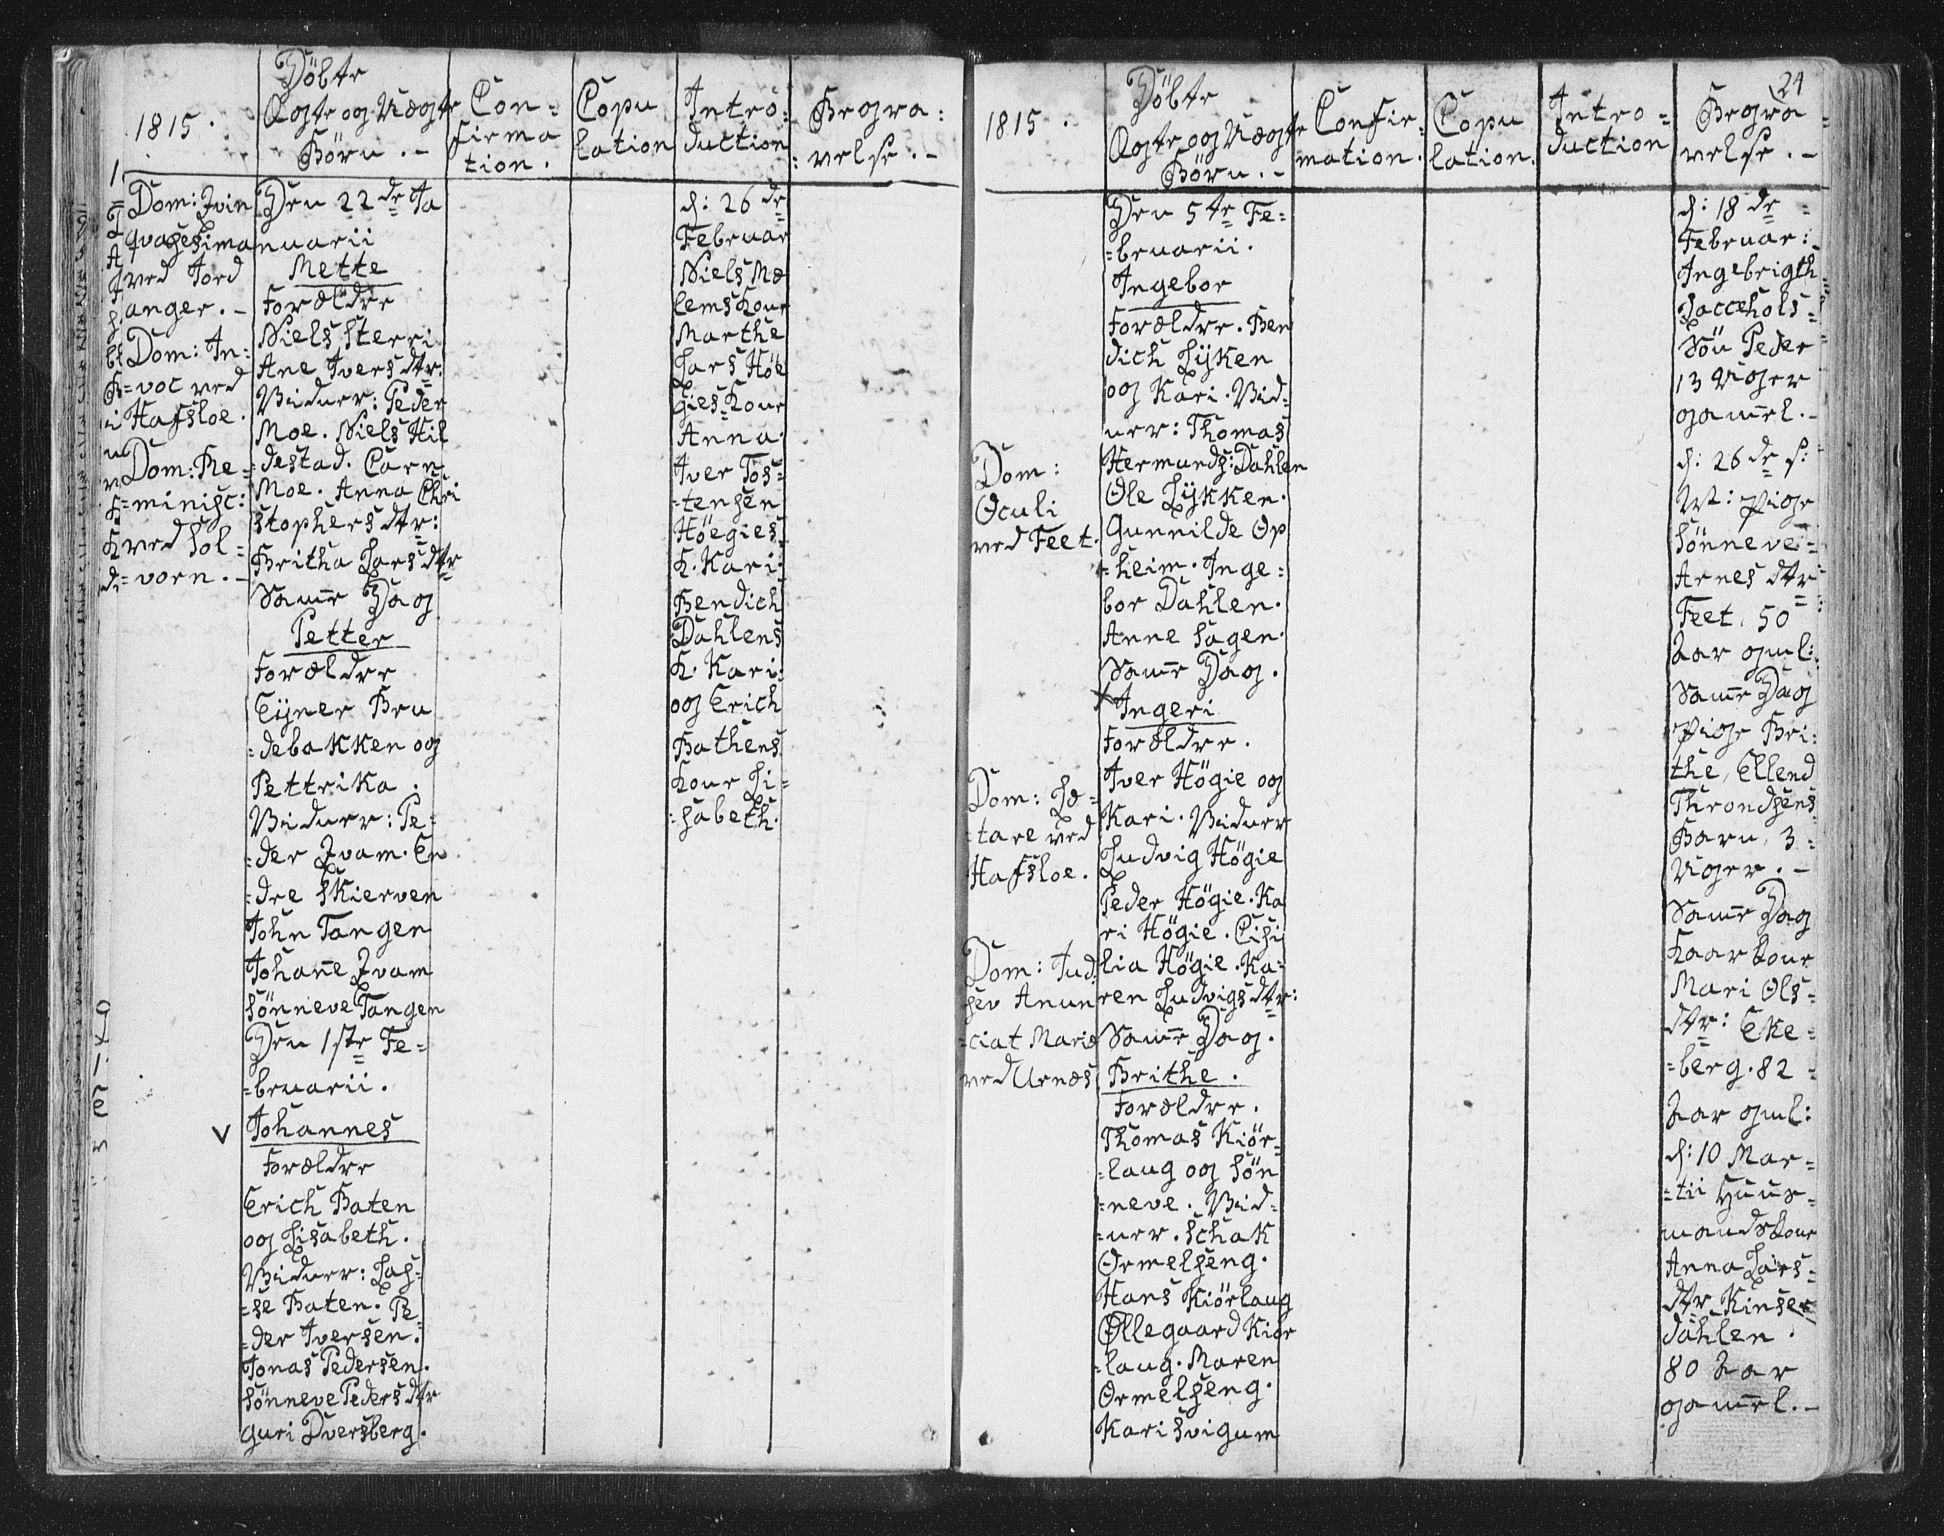 1815.
Döbte
Ægte og Uægte
Börn. -
Con=
firma
tion.
Copu
lation
Intro:
duction
Begra:
velse. -
Dom: Qvin
qvagesima
ved Jord
anger. -
Dom: In=
=voc ved
Hafsloe.
Dom: Re=
=minisc:
ved Sol=
=vorn. -
Den 22de Ja
nuarii
Mette
Forældre
Niels Sterri
Ane Ivers dtr.
Vidner: Peder
Moe. Niels Hil
=destad. Carn
Moe. Anna Chri
stophers dtr:
Britha Lars dtr
Same Dag
Petter
Forældre
Ejner Bru
=debakken og
Pettrika.
Vidner: Pe=
=der Qvam. En
=dre Skierven
John Tangen
Johane Qvam
Sönneve Tangen
Den 1ste Fe=
=bruarii.
V Johannes
Forældre
Erich Baten
og Lisabeth.
Vidner: Las=
=se Baten. Pe
=der Iversen.
Jonas Pedersen.
Sönneve Peders dtr
Guri Dversberg.
d: 26de
Februar
Niels Mæ
lems Kone
Marthe
Lars Höe
gies Kone
Anna.
Iver Tos=
=tensen
Höegies
K. Kari:
Bendich
Dahlens
K. Kari:
og Erich
Bathens
Kone Li=
=sabeth.
24
1815.
Döbte
Ægte og Uægte
Börn. -
Confir=
mation.
Copu
lation.
Intro=
duction
Begra=
velse. -
Dom:
Oculi
ved Feet.
Dom: Læ=
=tare ved
Hafsloe.
Dom: Jud.
sev Anun
=ciat Mariæ
ved Urnes
Den 5te Fe=
=bruarii.
Ingebor
Forældre. Ben
dich Lyken
og Kari. Vid=
ner: Thomas
Hermunds: Dahlen
Ole Lykken.
Gunnilde Op
=heim. Inge=
bor Dahlen.
Anne Hagen.
Same Dag.
x Ingeri
Forældre.
Iver Högie og
Kari. Vidner
Ludvig Högie
Peder Högie. Ka
ri Högie. Cisi
lia Högie. Ka=
ren Ludvigs dtr:
Same Dag.
Brithe.
Forældre.
Thomas Kiör=
=laug og Sön
=neve. Vid=
=ner. Schak
Ormelseng.
Hans Kiörlaug
Ollegaard Kiör
=laug. Maren
Ormelseng.
Kari Svigum
d: 18de
Februar:
Ingebrigth
Sön Peder
13 Uger
gamel. -
d: 26de s:
M: Pige
Sönneve=
Arnes dtr
Feet. 50
Aar gml:
Same Dag
Pige Bri=
the, Ellend
Throndsens
Barn, 3
Uger. -
Same Dag
Kaarkone
Mari Ols=
dtr: Eke=
=berg. 82
Aar gml:
d: 10 Mar=
=tii Huus=
mandskone
Anna Lars=
dtr Kinser
dahlen.
80 Aar
gamel. -